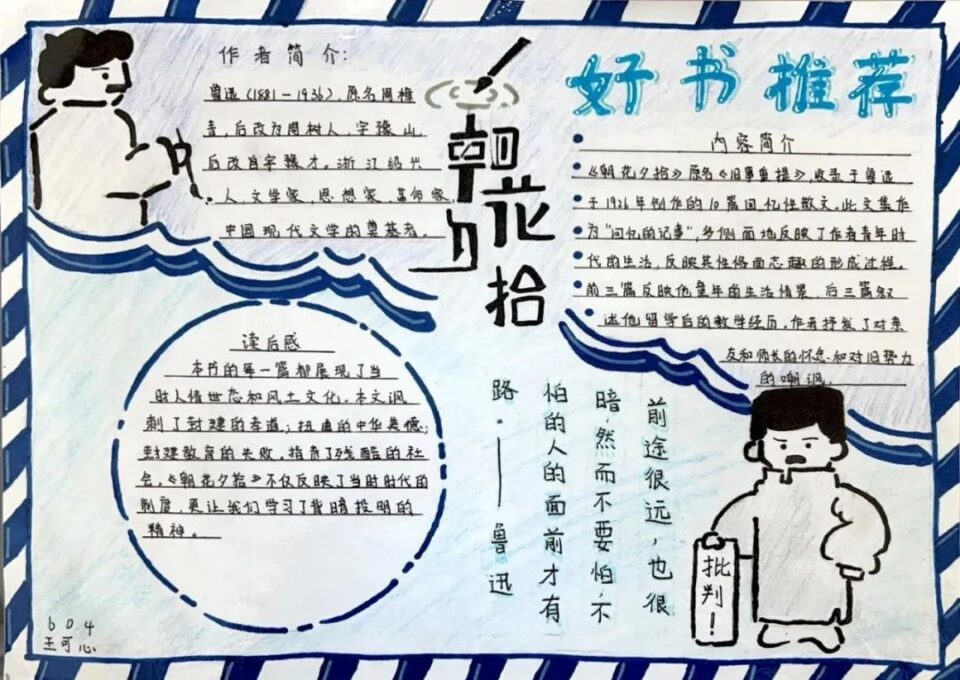 好书推荐
朝花夕拾
作者简介:
鲁迅(1881-1936),原名周樟
寿,后改为周树人,字豫山,
后改自字豫才。浙江绍兴
人,文学家、思想家、革命家、
中国现代文学的奠基者。
内容简介
《朝花夕拾》原名《旧事重提》,收录于鲁迅
于1926年创作的10篇回忆性散文。此文集作
为“回忆的记事”,多侧面地反映了作者青年时
代的生活,反映其性格面志趣的形成过程。
前三篇反映他童年的生活情景,后三篇叙
述他留学后的教学经历,作者抒发了对亲
友和师长的怀念和对旧势力
的嘲讽。
读后感
本书的每一篇都展现了当
时人情世态和风土文化。本文讽
刺了封建的孝道;扭曲的中华美德;
封建教育的失败,指责了残酷的社
会。《朝花夕拾》不仅反映了当时时代的
制度,更让我们学习了我暗投明的
精神。
前途很远,也很
暗,然而不要怕,不
怕的人的面前才有
路。——鲁迅
批判!
604
王可心